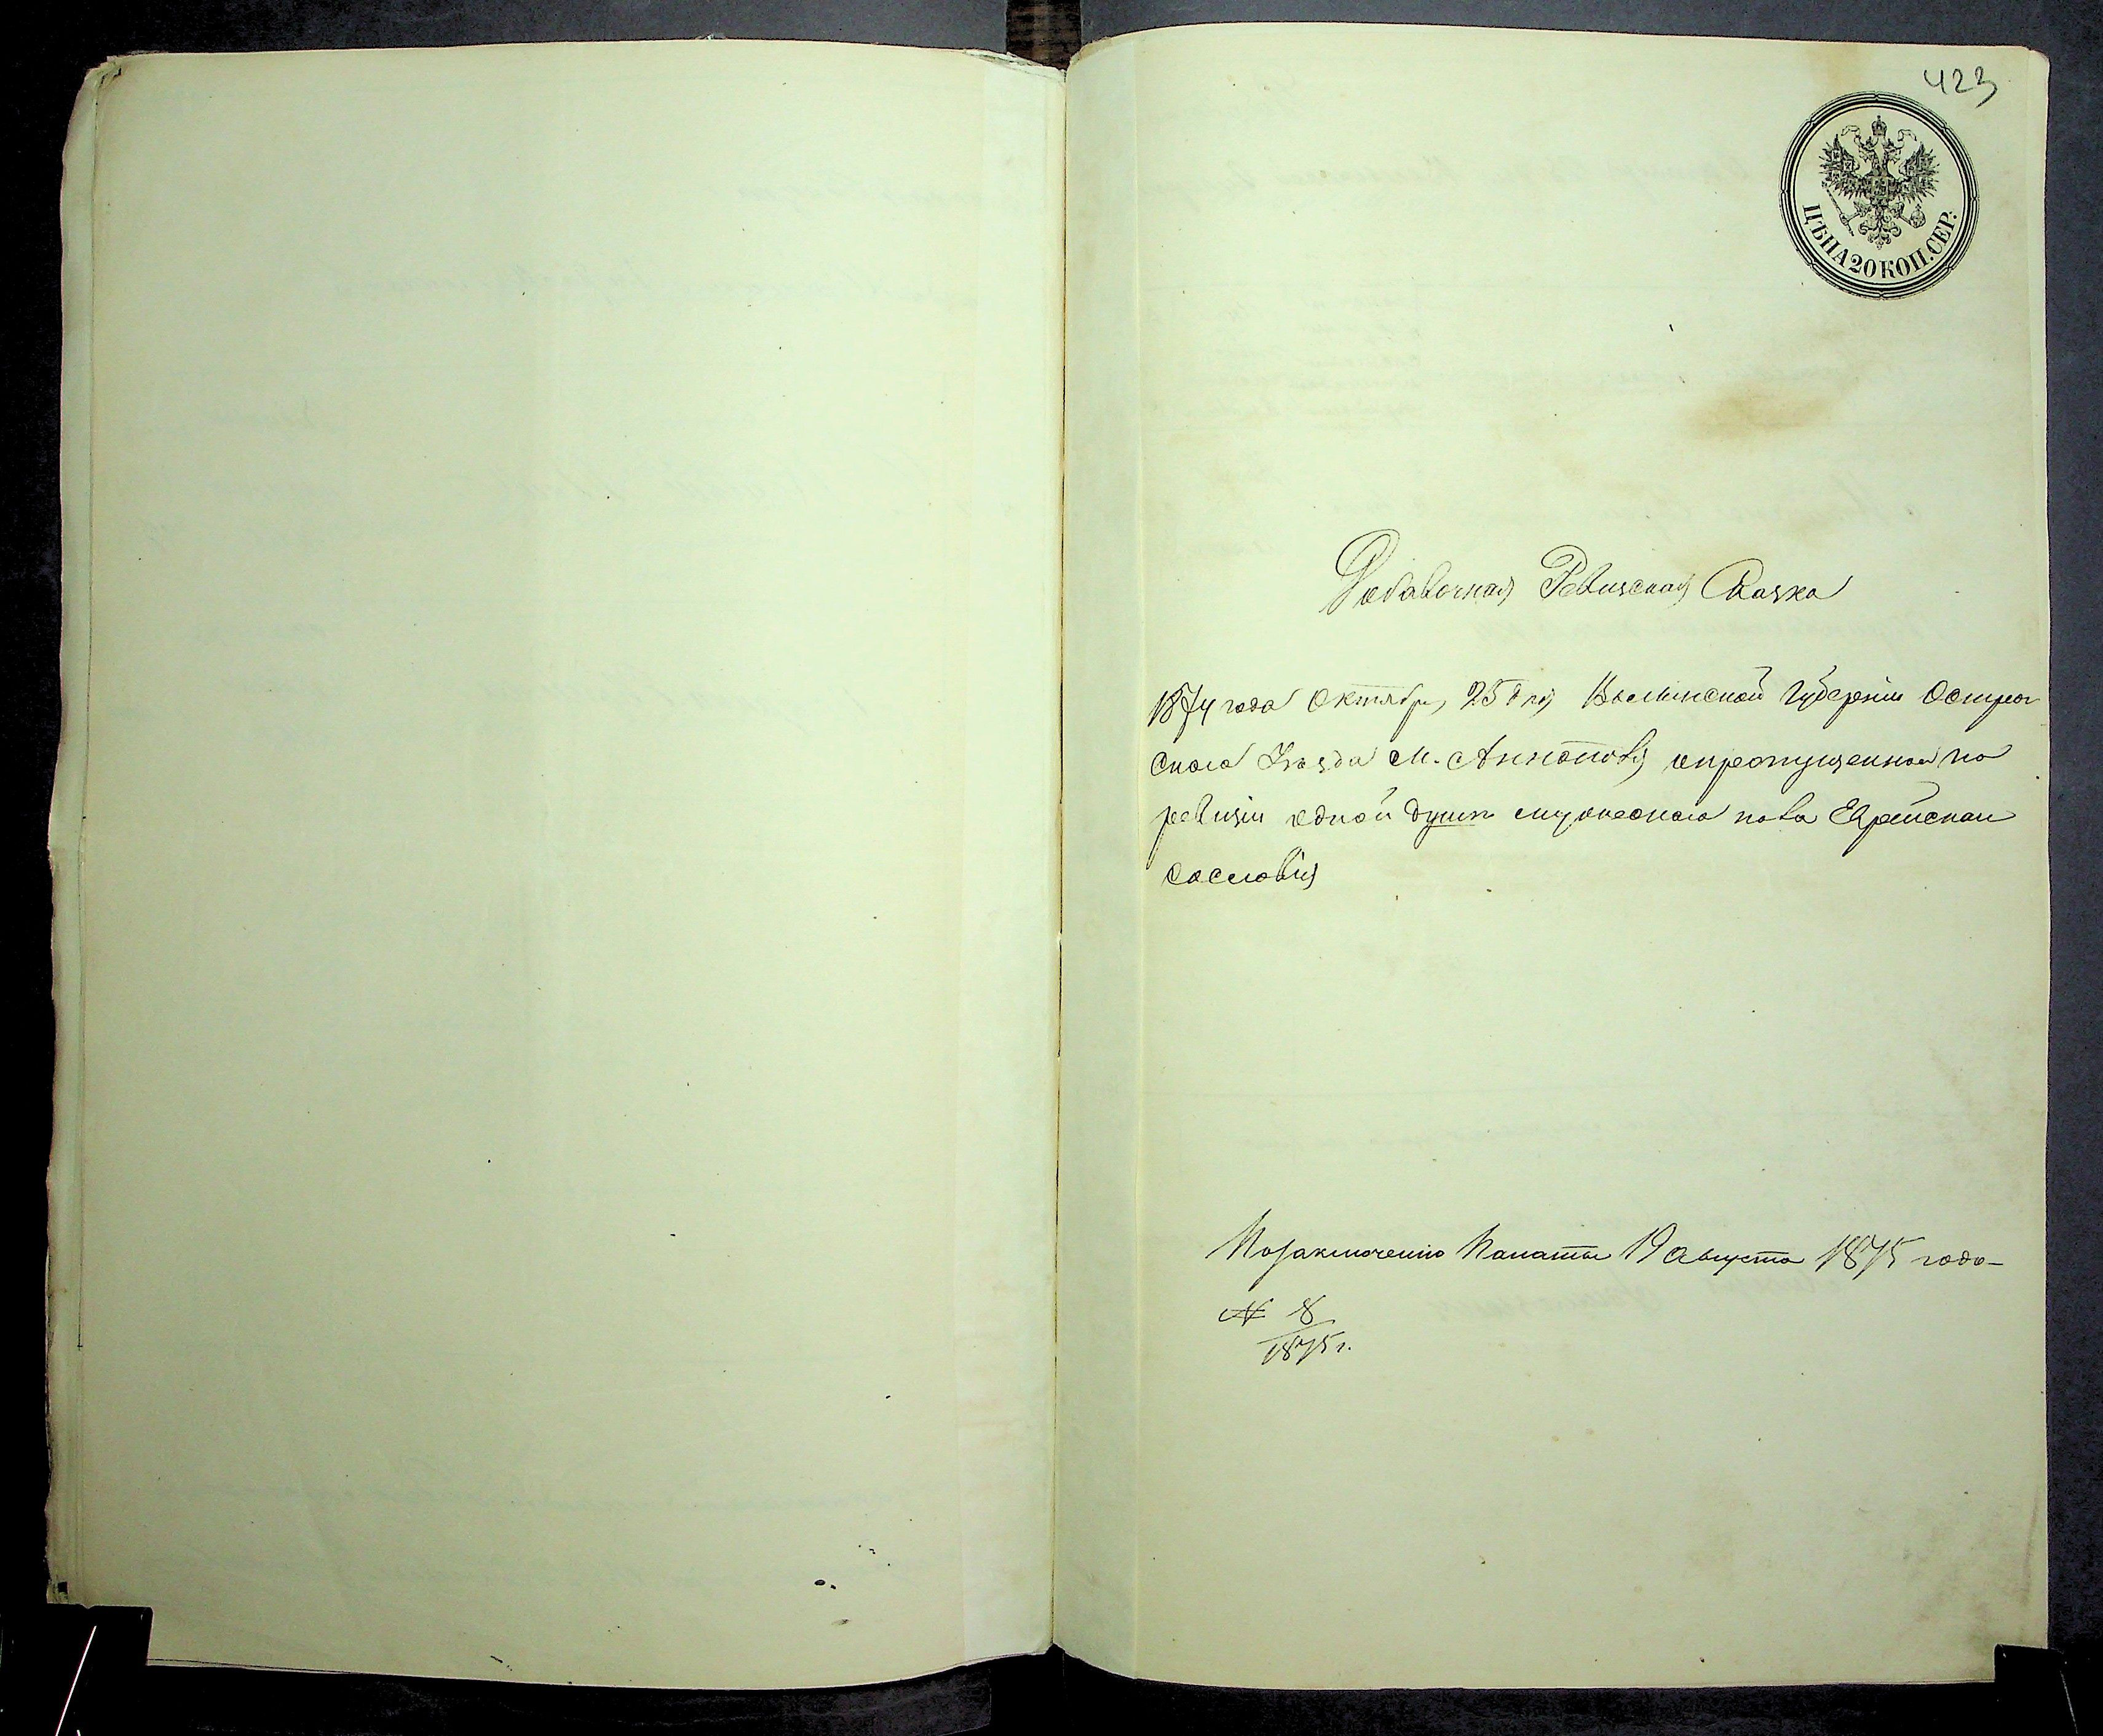 423
ЦѢНА 20 КОП. СЕР.
Добавочная Ревизская Сказка
1874 года Октября 25 дня Волынской Губернiи Острож
скаго Уѣзда М. Аннополя о пропущенной по
ревизiи одной душѣ мужескаго пола Еврейскаго
сословiя
По заключенiю Палаты 19 августа 1875 года
№ 8
1875 г.